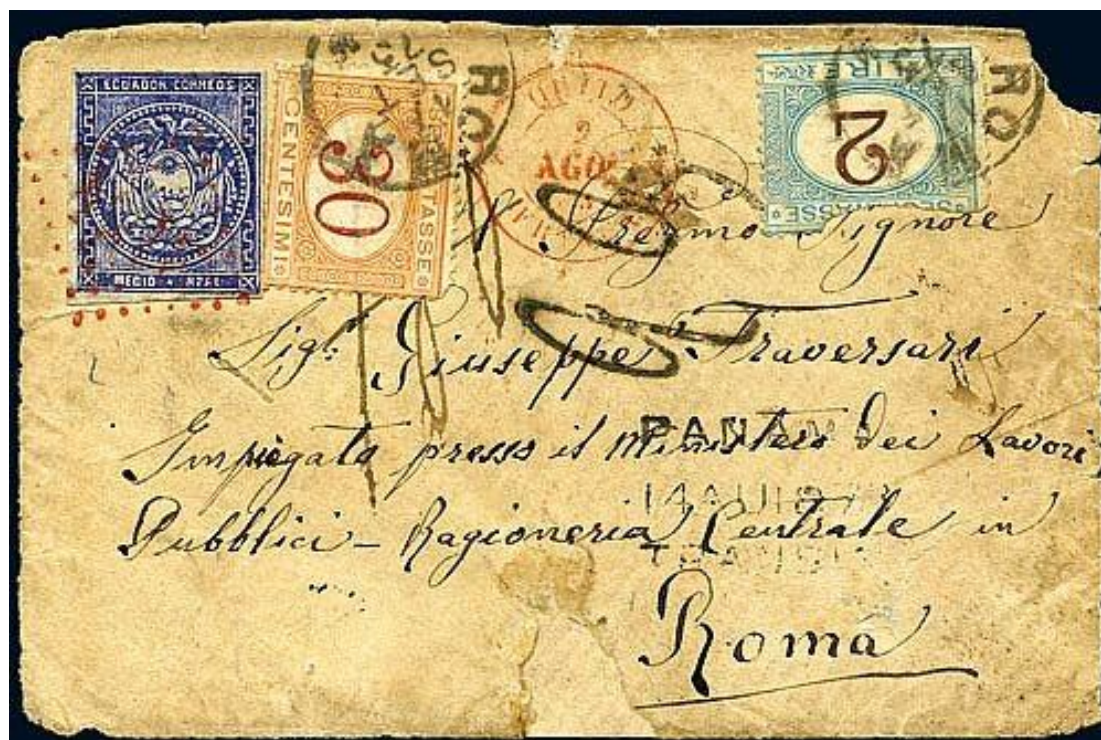 ECUADOR CORREOS
MEDIO REAL
CENTESIMI
30
SEGNATASSE
QUITO
2
AGO
LIRE
2
SEGNATASSE
RO
RO
Pregmo Signore
Sigr Giuseppe Traversari
PANAMA
Impiegato presso il Ministero dei Lavori
14 AU 187
Pubblici - Ragioneria Centrale in
TRANSIT
Roma